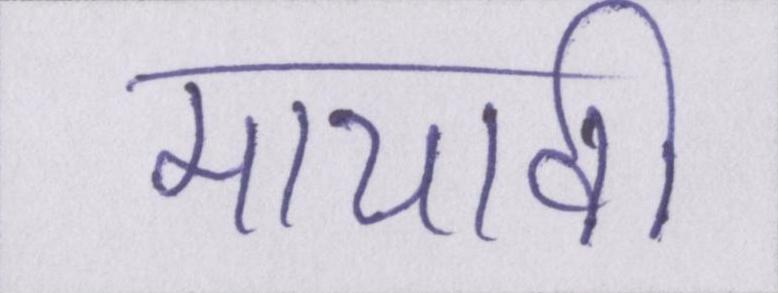 मायावी